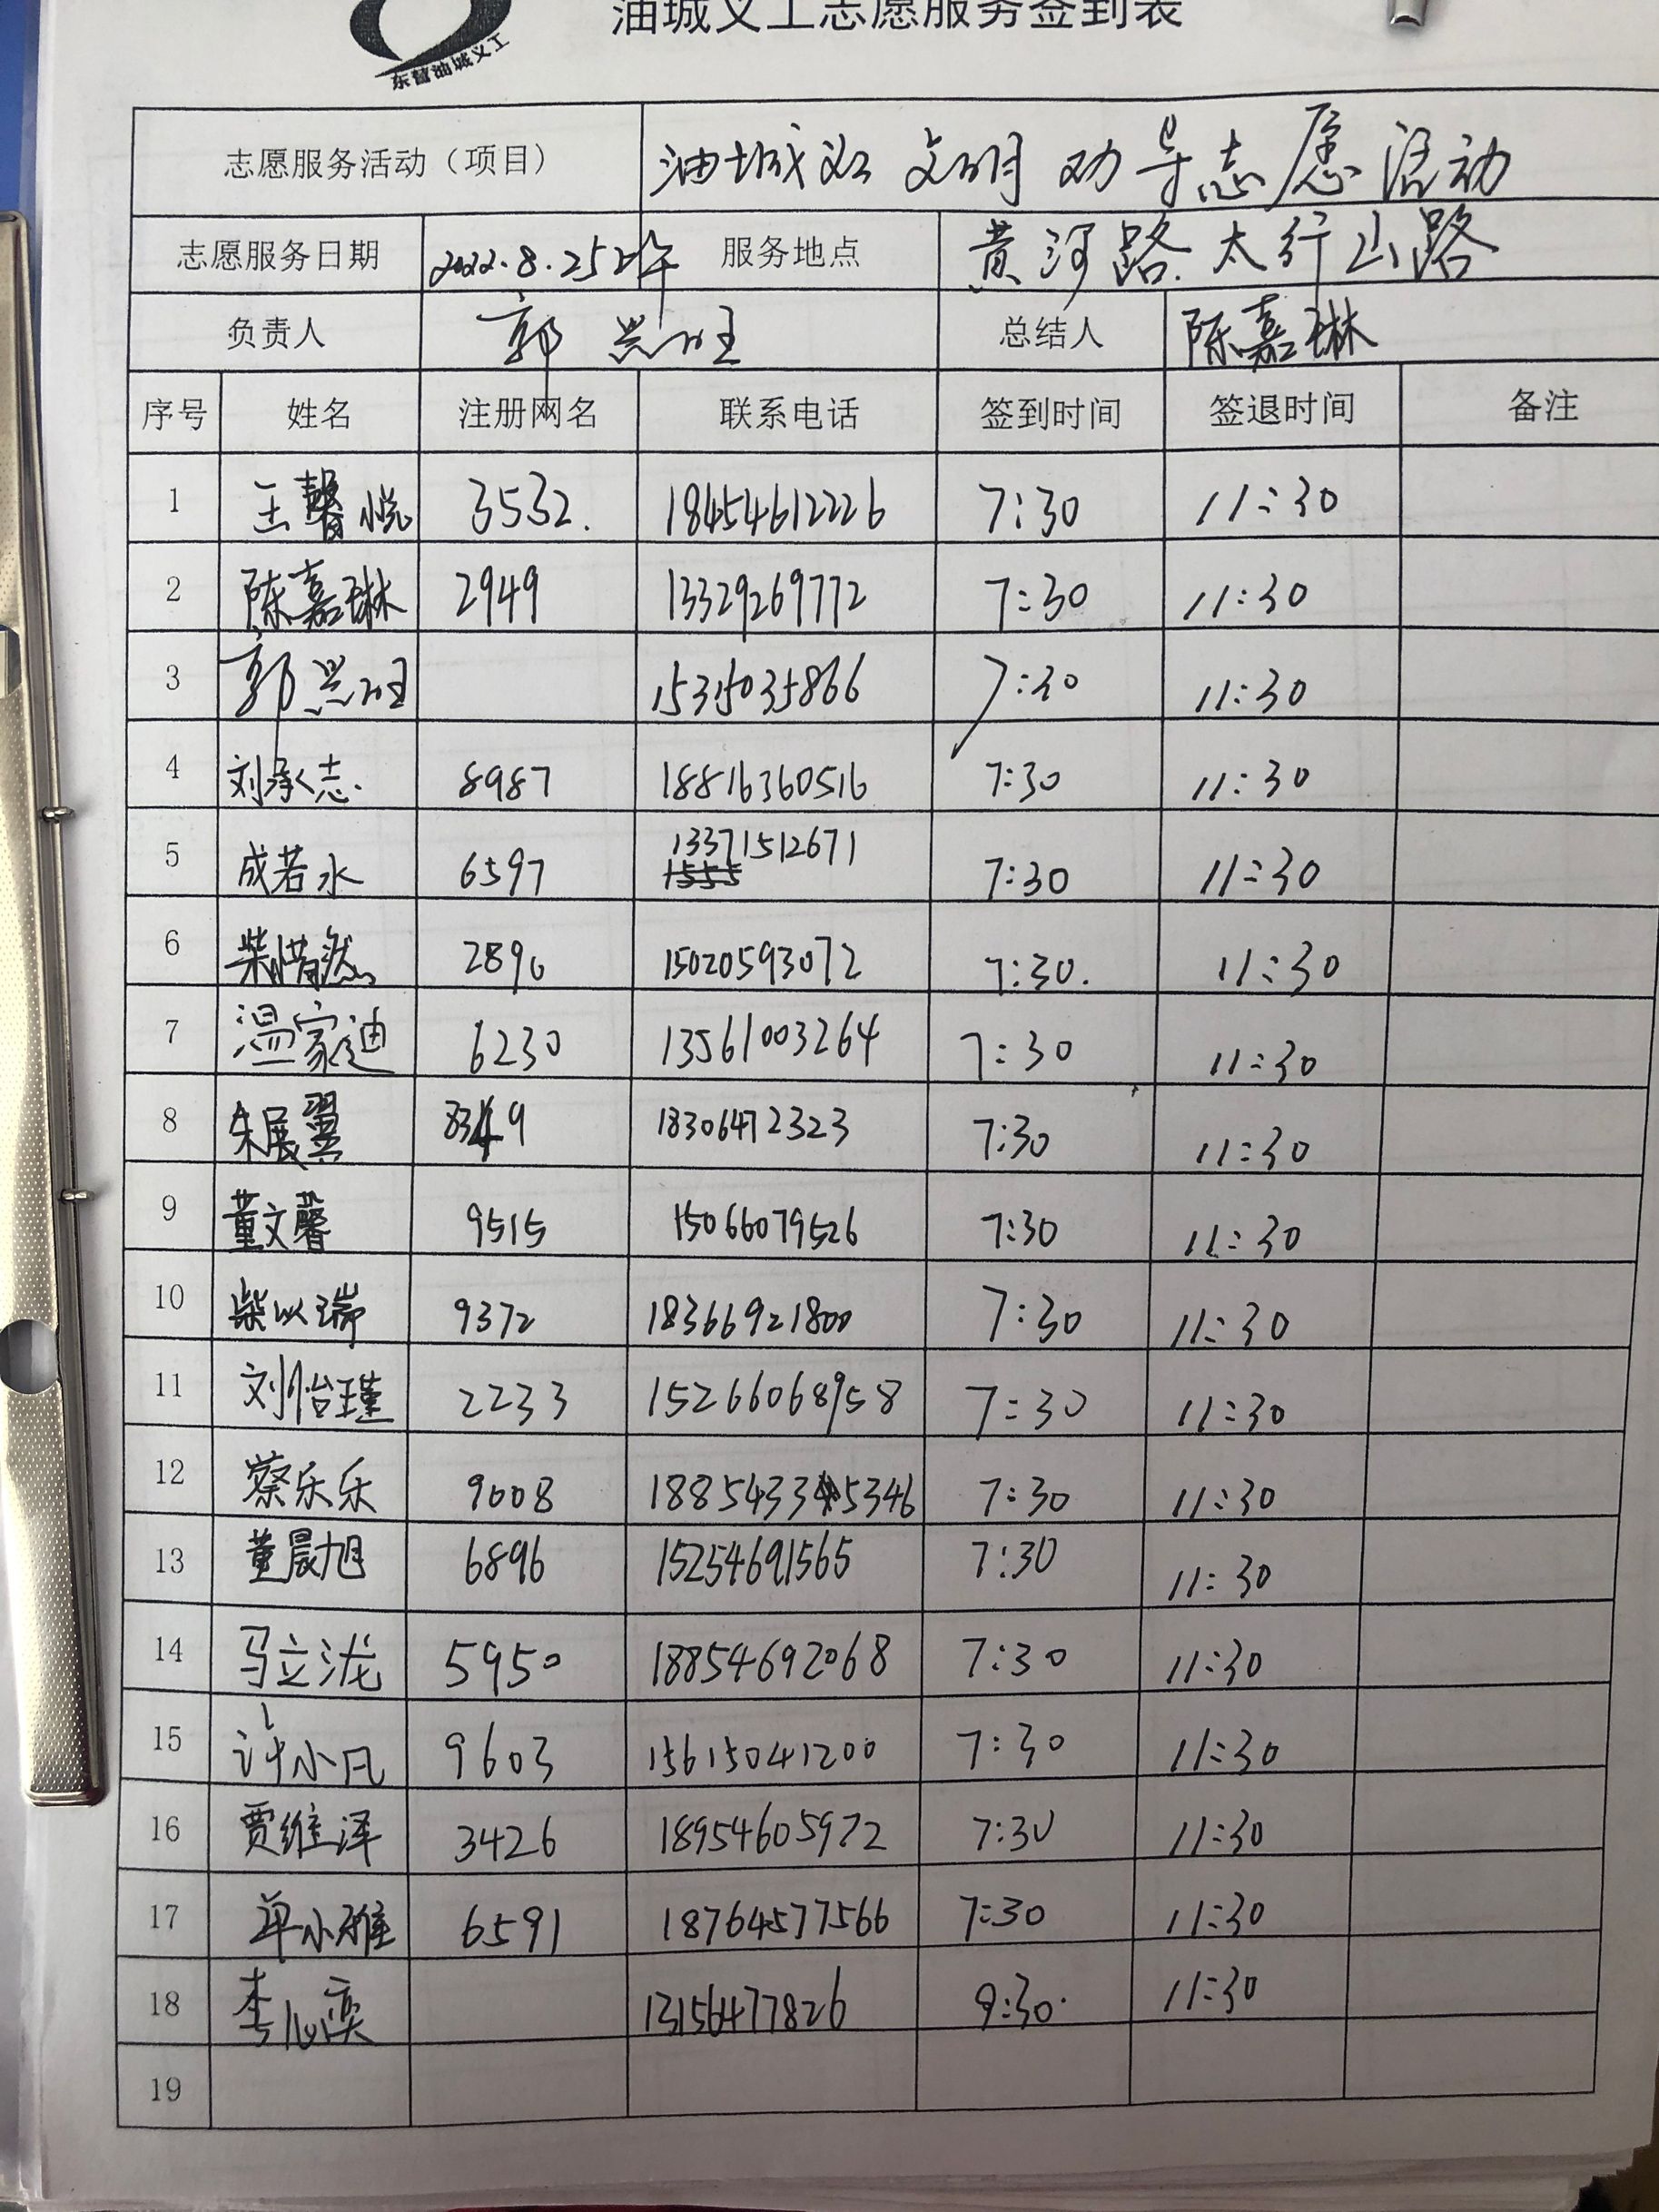 油城义工志愿服务签到表
东营油城义工
志愿服务活动（项目） 油城义工 文明劝导志愿活动
志愿服务日期 2022.8.25上午 服务地点 黄河路.太行山路
负责人 郭兴旺 总结人 陈嘉琳
序号 姓名 注册网名 联系电话 签到时间 签退时间 备注
1 王馨悦 3532. 18454612226 7:30 11:30
2 陈嘉琳 2949 13329269772 7:30 11:30
3 郭兴旺 15315035866 7:30 11:30
4 刘承志. 8987 18816360516 7:30 11:30
5 成若水 6597 13371512671 7:30 11:30
6 柴惜然 2896 15020593072 7:30. 11:30
7 温家迪 6230 13561003264 7:30 11:30
8 朱展翼 8349 18306472323 7:30 11:30
9 董文馨 9515 15066079526 7:30 11:30
10 柴以瑞 9372 18366921800 7:30 11:30
11 刘怡瑾 2233 15266068958 7:30 11:30
12 蔡乐乐 9008 18854335346 7:30 11:30
13 董晨旭 6896 15254691565 7:30 11:30
14 马立泷 5950 18854692068 7:30 11:30
15 许小凡 9603 15615041200 7:30 11:30
16 贾维泽 3426 18954605972 7:30 11:30
17 单小雅 6591 18764577566 7:30 11:30
18 李心奕 13156477826 9:30. 11:30
19